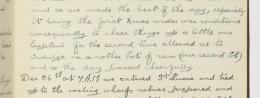 and so we made the best of the day, especially
it being the first Xmas under war conditions
consequently to cheer things up a little our
Captain for the second time allowed us to
indulge in another tot of rum (our second tot)
and so the day passed cheerfully.
Dec 26th at 7 A.M. we entered St Lucia and tied
up to the coaling wharf, natives prepared and